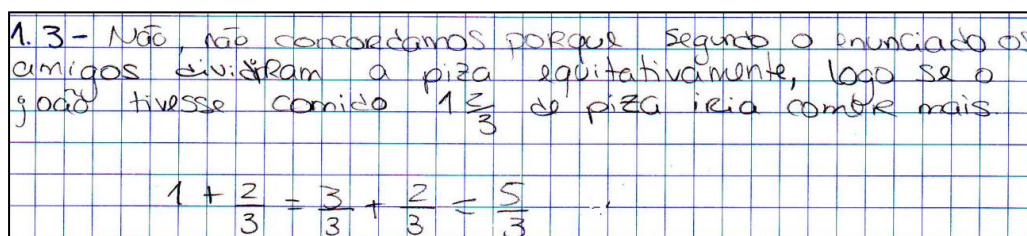 1.3- Não, não concordamos porque segundo o enunciado os
amigos dividiram a piza equitativamente, logo se o
joão tivesse comido 1 2/3 de piza iria comer mais.
1 + 2/3 = 3/3 + 2/3 = 5/3